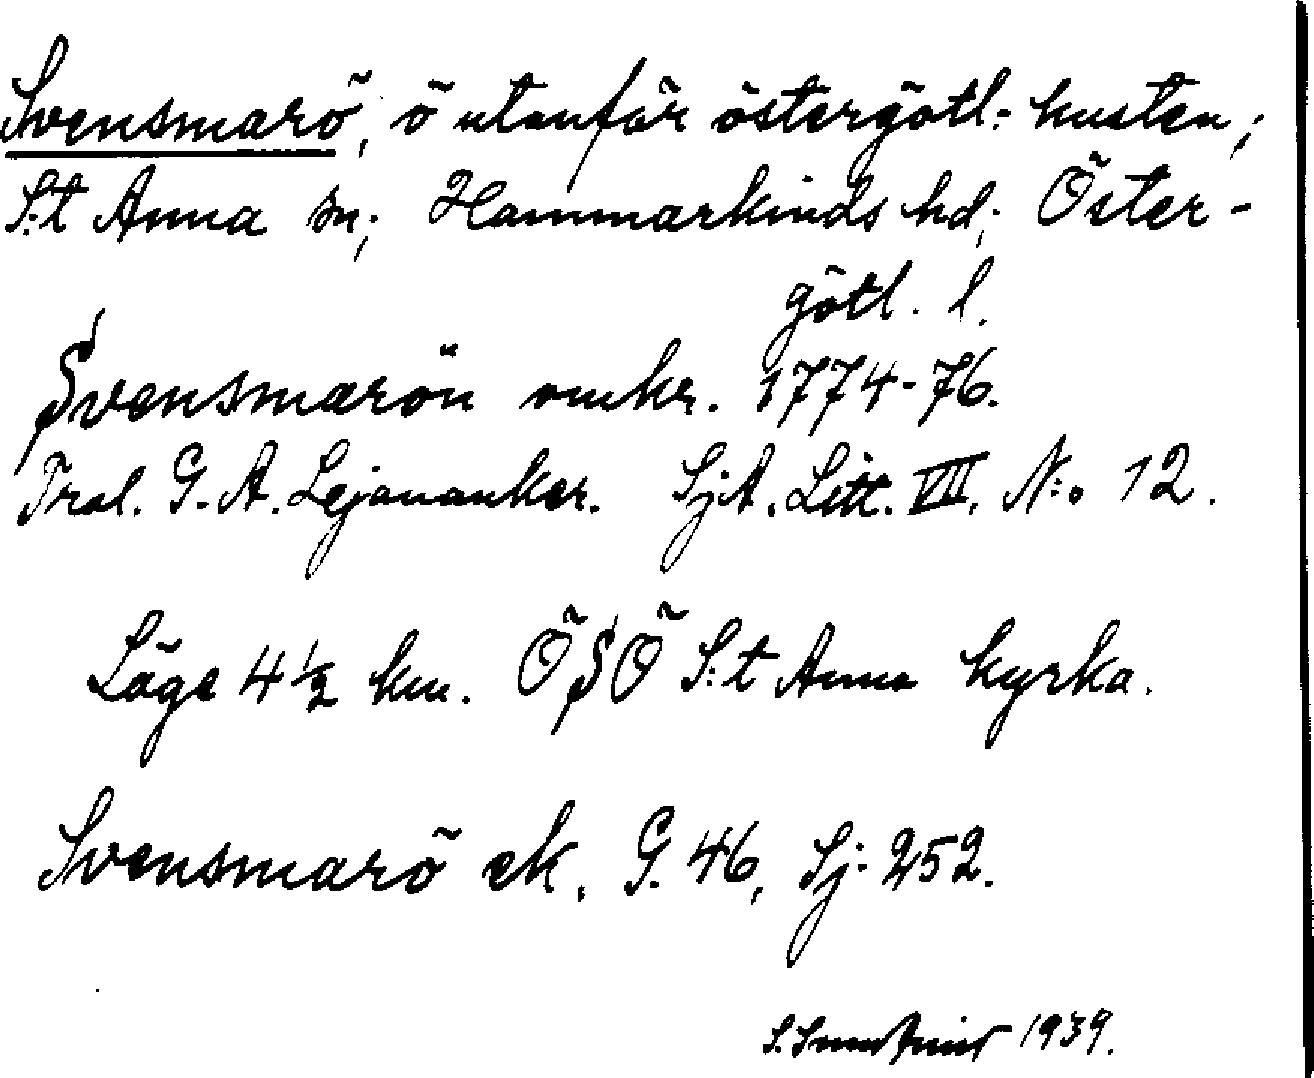 Svensmarö, ö utanför östergötl: kusten;
S:t Anna sn; Hammarkinds hd; Öster-
götl. l.
Svensmarön omkr. 1774-76.
Trol. G. A. Lejonanker. SjA. Litt. VII. N:o 12.
Läge 4 1/2 km. ÖSÖ S:t Anna kyrka.
Svensmarö ek. G. 46, Sj: 252.
S. 1939.